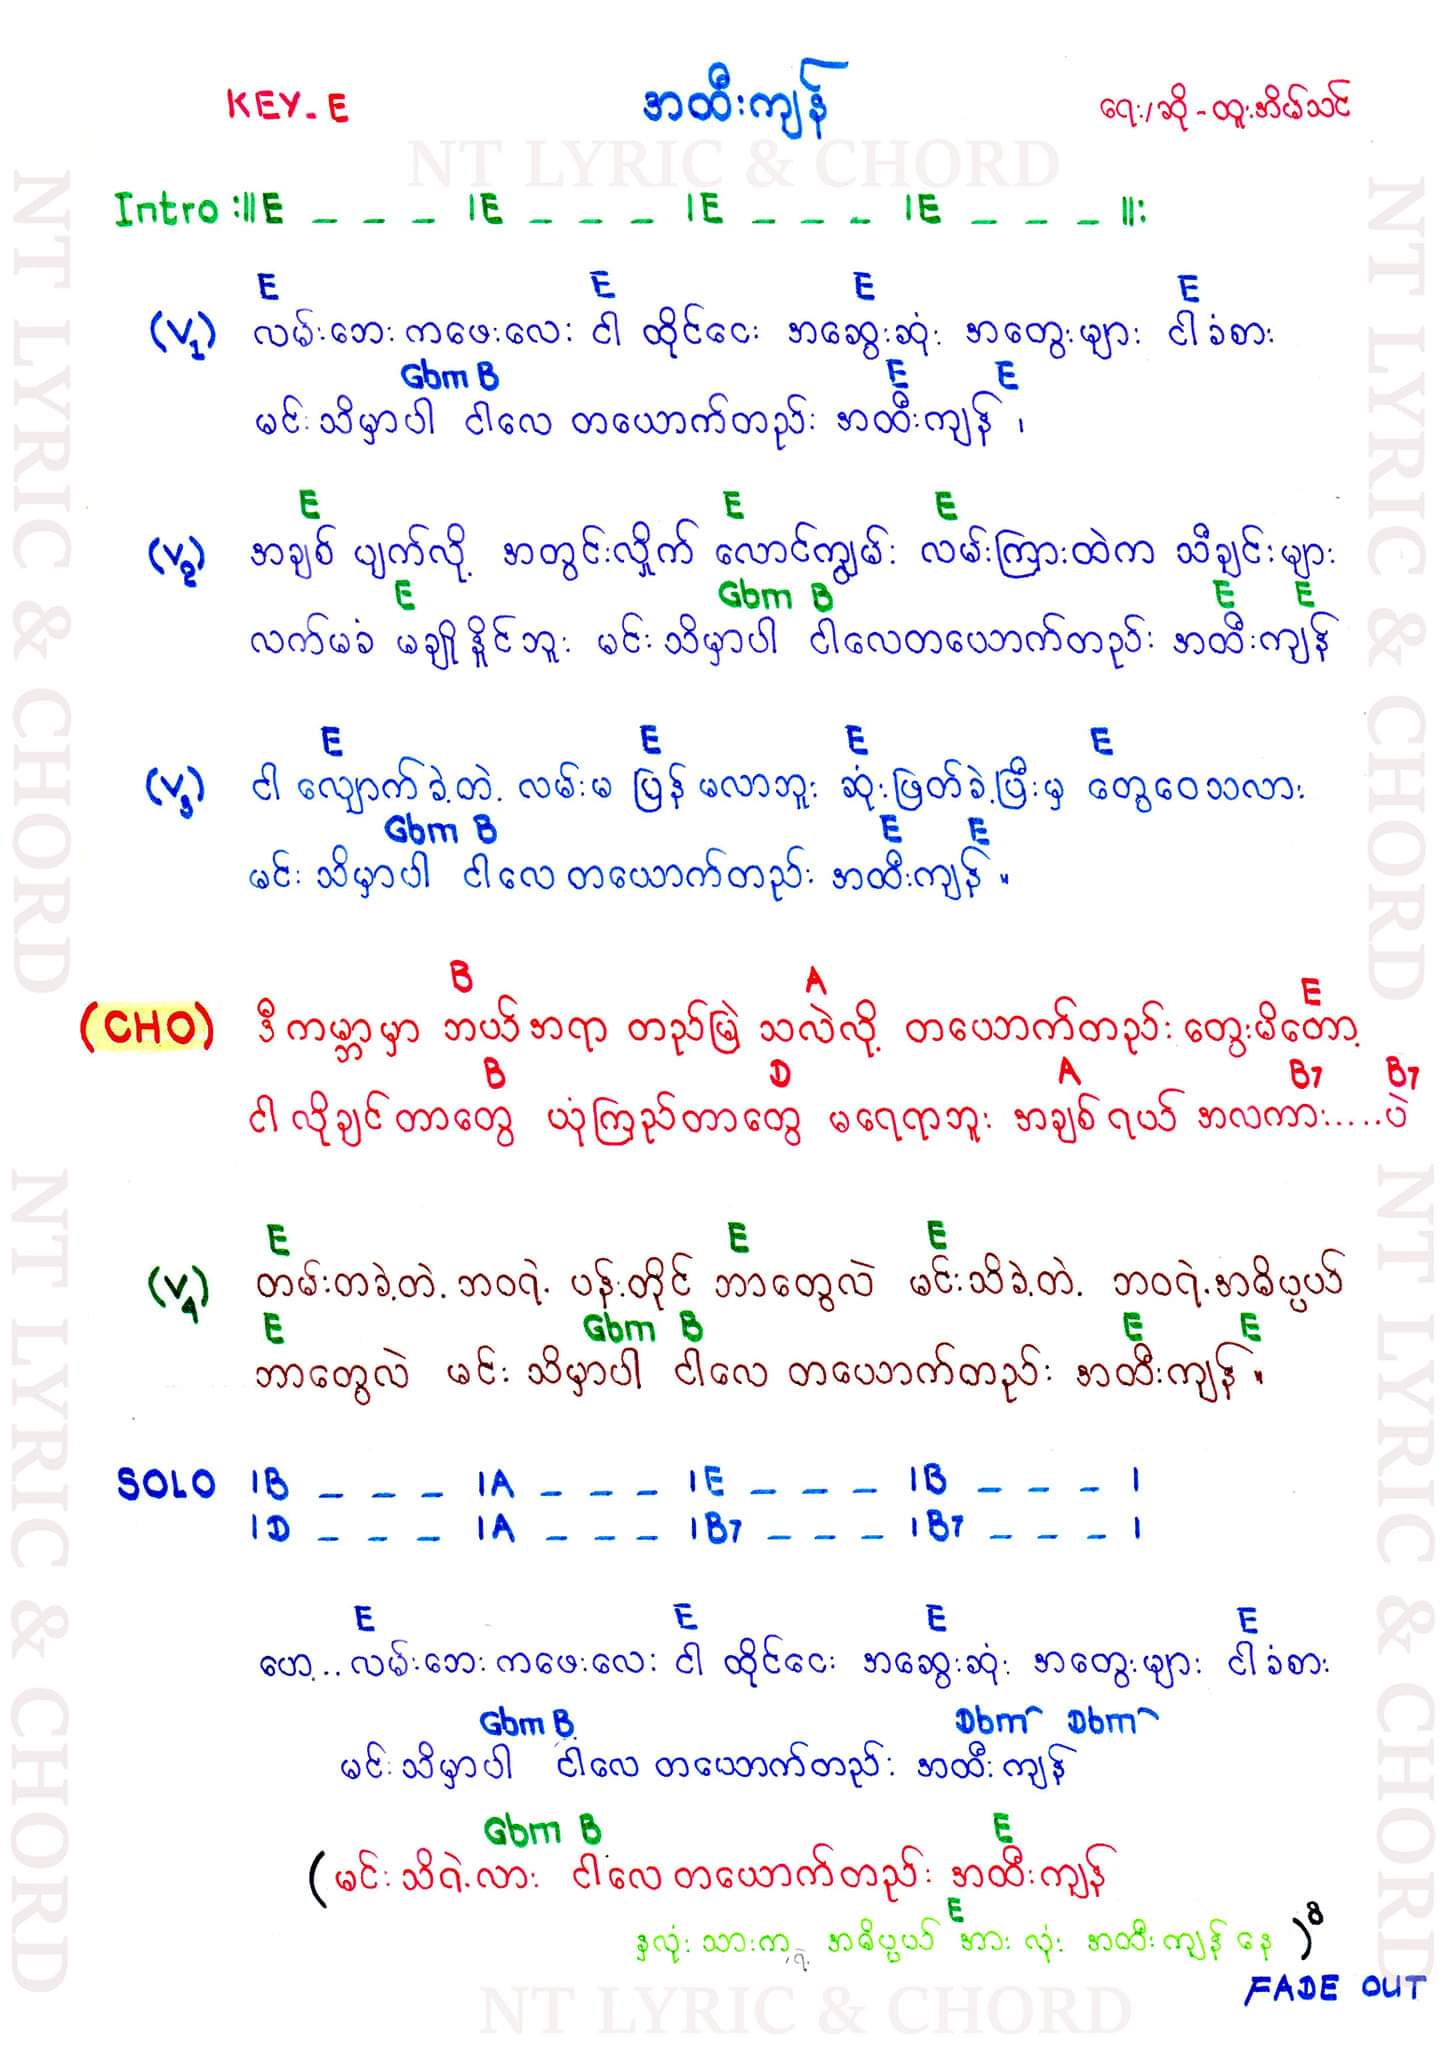 KEY - E အထီးကျန် ရေး/ဆို - ထူးအိမ်သင်
NT LYRIC & CHORD
Intro :||E _ _ _ |E _ _ _ |E _ _ _ |E _ _ _ ||:
E E E E
(V1) လမ်းဘေး ကဖေးလေး ငါ ထိုင်ငေး အဆွေးဆုံး အတွေးများ ငါ ခံစား
Gbm B E E
မင်း သိမှာပါ ငါလေ တယောက်တည်း အထီးကျန် ၊
E E E
(V2) အချစ် ပျက်လို့ အတွင်းလှိုက် လောင်ကျွမ်း လမ်းကြားထဲက သီချင်းများ
E Gbm B E E
လက်မခံ မချိုနိူင်ဘူး မင်း သိမှာပါ ငါလေတယောက်တည်း အထီးကျန်
E E E E
(V3) ငါ လျှောက်ခဲ့တဲ့ လမ်းမ ပြန် မလာဘူး ဆုံးဖြတ်ခဲ့ပြီးမှ တွေဝေသလား
Gbm B E E
မင်း သိမှာပါ ငါလေ တယောက်တည်း အထီးကျန် ။
B A E
(CHO) ဒီကမ္ဘာမှာ ဘယ်အရာ တည်မြဲ သလဲလို့ တယောက်တည်း တွေးမိတော့
B D A B7 B7
ငါ လိုချင်တာတွေ ယုံကြည်တာတွေ မရေရာဘူး အချစ်ရယ် အလကား.....ပဲ
E E E
(V4) တမ်းတခဲ့တဲ့ ဘဝရဲ့ ပန်းတိုင် ဘာတွေလဲ မင်းသိခဲ့တဲ့ ဘဝရဲ့အဓိပ္ပယ်
E Gbm B E E
ဘာတွေလဲ မင်း သိမှာပါ ငါလေ တယောက်တည်း အထီးကျန် ။
SOLO |B _ _ _ |A _ _ _ |E _ _ _ |B _ _ _ |
|D _ _ _ |A _ _ _ |B7 _ _ _ |B7 _ _ _ |
E E E E
ဟေ့... လမ်းဘေး ကဖေးလေး ငါ ထိုင်ငေး အဆွေးဆုံး အတွေးများ ငါ ခံစား
Gbm B Dbm Dbm
မင်း သိမှာပါ ငါလေ တယောက်တည်း အထီးကျန်
Gbm B E
( မင်း သိရဲ့လား ငါလေ တယောက်တည်း အထီးကျန်
E
နှလုံး သားက ရဲ့ အဓိပ္ပယ် အား လုံး အထီးကျန် နေ )8
FADE OUT
NT LYRIC & CHORD
NT LYRIC & CHORD
NT LYRIC & CHORD
NT LYRIC & CHORD
NT LYRIC & CHORD